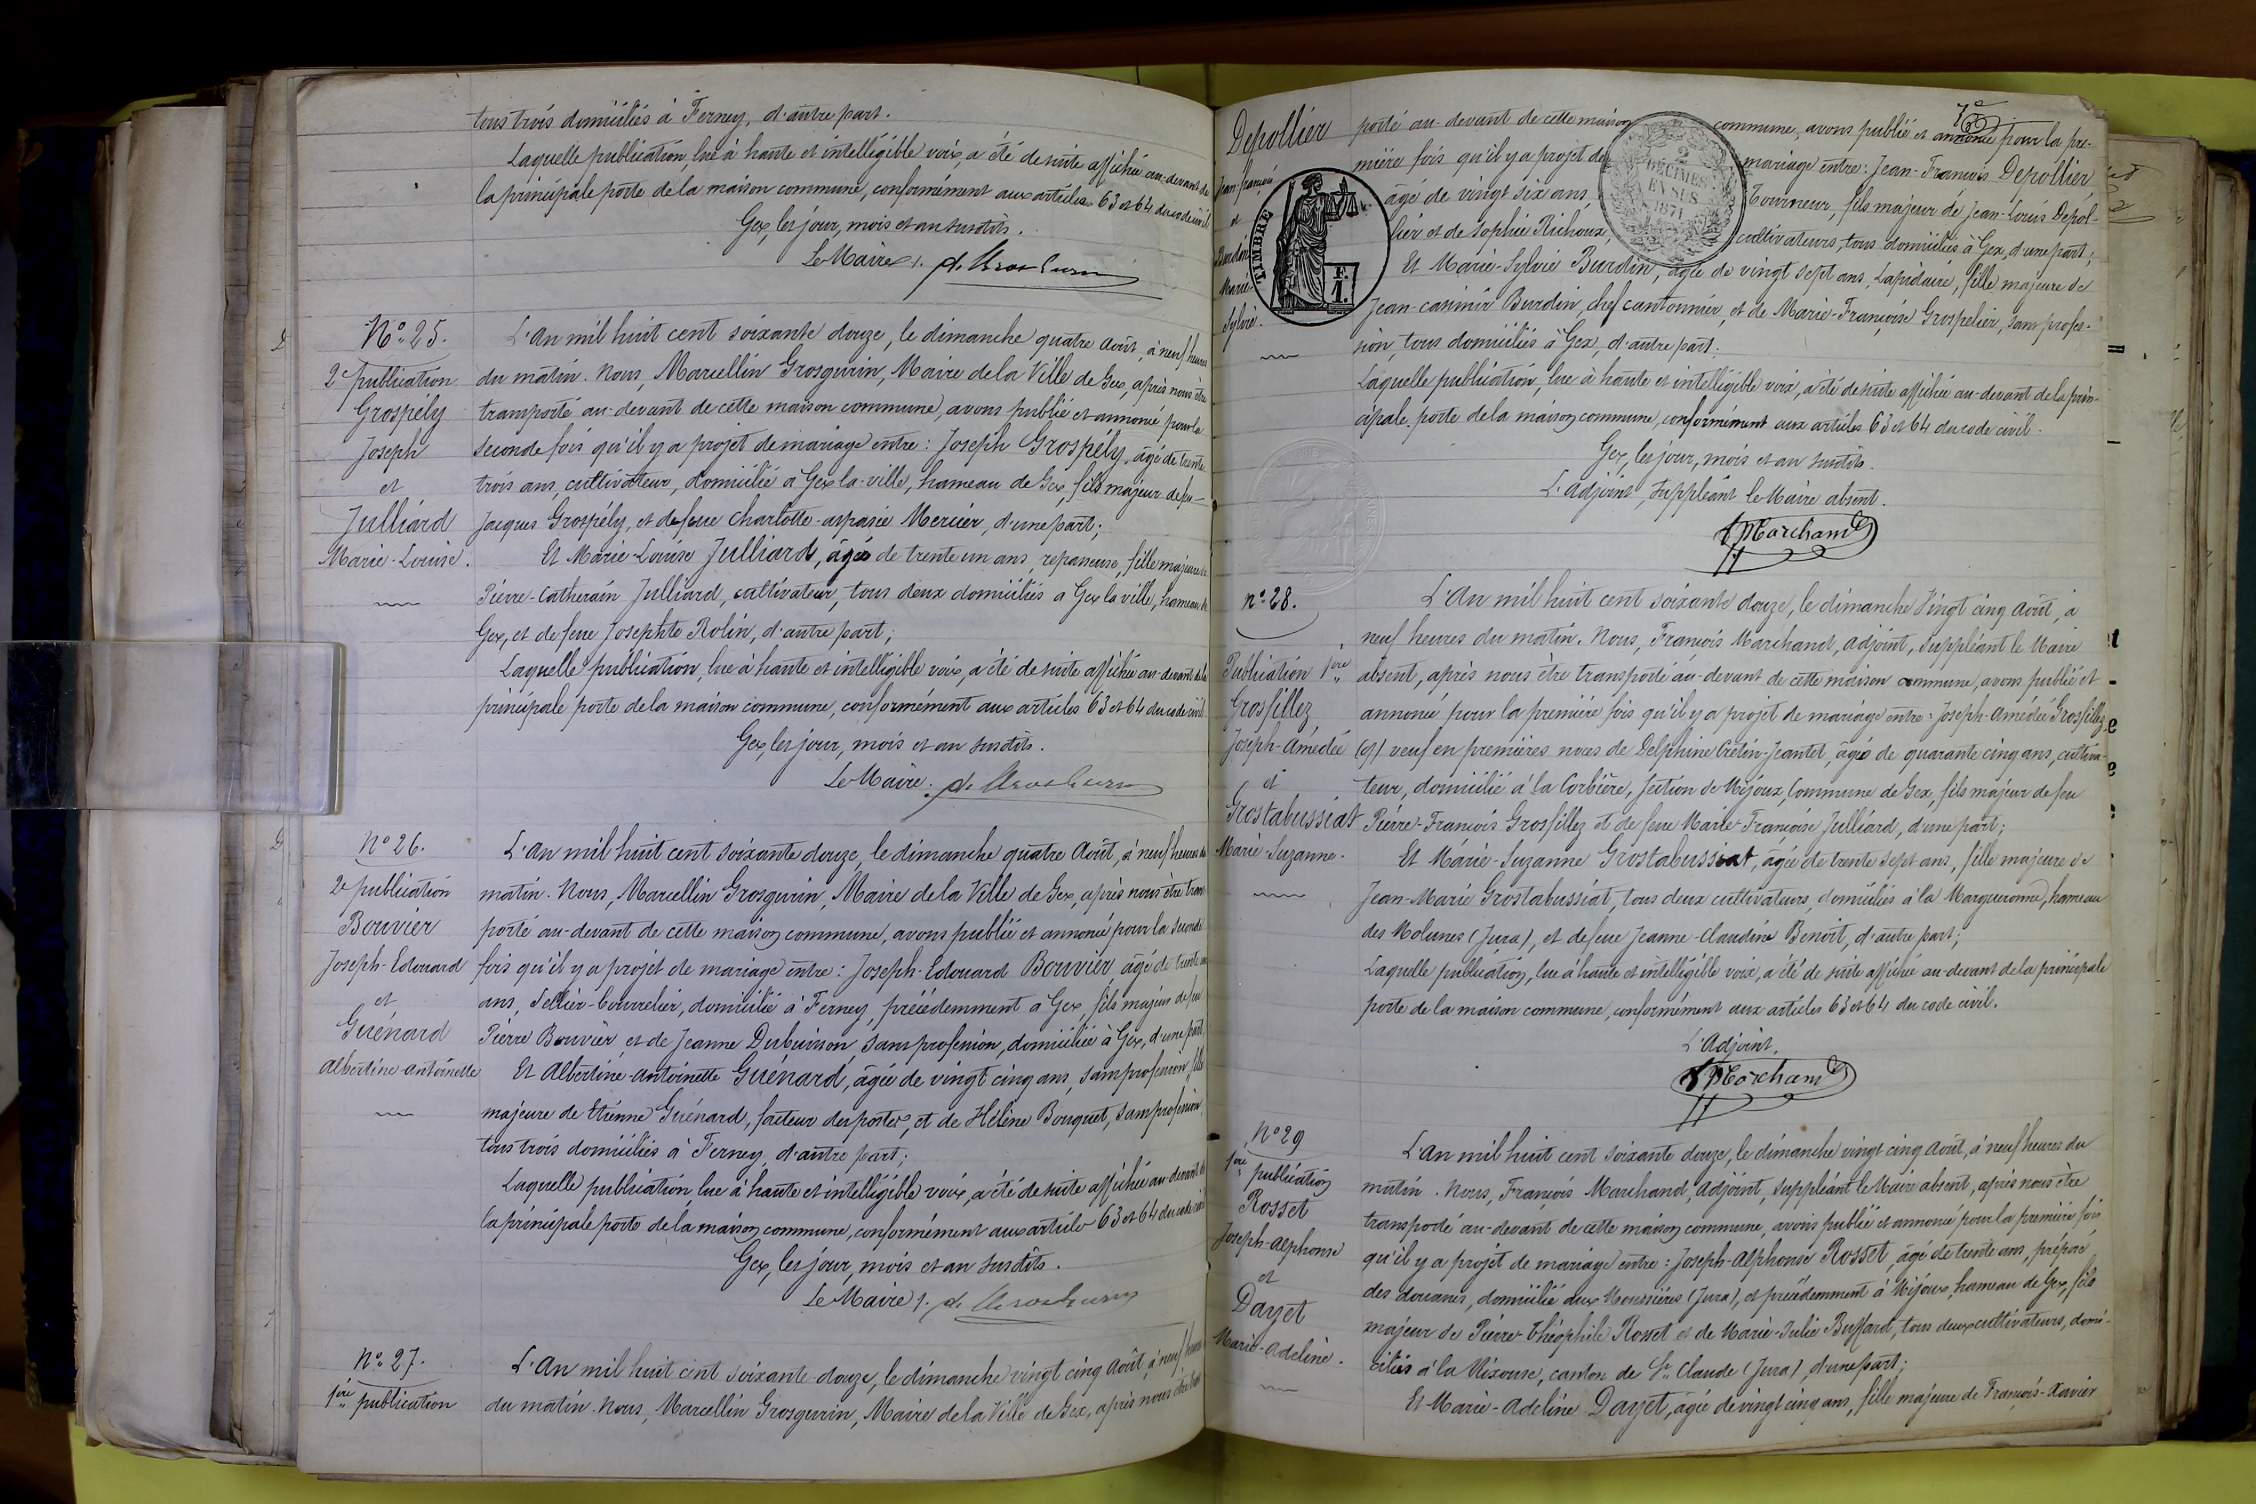 tous trois domiciliés à Ferney, d'autre part.
Laquelle publication, lue à haute et intelligible voix, a été de suite affichée au-devant de
la principale porte de la maison commune, conformément aux articles 63 et 64 du code civil
Gex, les jour, mois et an susdits.
Le Maire
N° 25.
2e publication
Grospély
Joseph
et
Julliard
Marie-Louise.
L'An mil huit cent soixante douze, le dimanche quatre Août, à neuf heures
du matin. Nous, Marcellin Grosgurin, Maire de la Ville de Gex, après nous être
transporté au-devant de cette maison commune, avons publié et annoncé pour la
seconde fois qu'il y a projet de mariage entre : Joseph Grospély, âgé de trente
trois ans, cultivateur, domicilié à Gex-la-ville, hameau de Gex, fils majeur de feu
Jacques Grospély, et de feue Charlotte-aspasie Mercier, d'une part ;
Et Marie-Louise Julliard, âgée de trente un ans, repasseuse, fille majeure de
Pierre-Catherain Julliard, cultivateur, tous deux domiciliés à Gex la ville, hameau de
Gex, et de feue Josephte Rolin, d'autre part ;
Laquelle publication, lue à haute et intelligible voix, a été de suite affichée au-devant de la
principale porte de la maison commune, conformément aux articles 63 et 64 du code civil
Gex, les jour, mois et an susdits.
Le Maire.
N° 26.
2e publication
Bouvier
Joseph-Edouard
et
Guénard
Albertine-antoinette
L'An mil huit cent soixante douze, le dimanche quatre Août, à neuf heures du
matin. Nous, Marcellin Grosgurin, Maire de la Ville de Gex, après nous être trans
porté au-devant de cette maison commune, avons publié et annoncé pour la seconde
fois qu'il y a projet de mariage entre : Joseph-Edouard Bouvier âgé de trente un
ans, Sellier-bourrelier, domicilié à Ferney, précédemment à Gex, fils majeur de feu
Pierre Bouvier et de Jeanne Dubuisson, sans profession, domiciliée à Gex, d'une part
Et Albertine-antoinette Guénard, âgée de vingt cinq ans, sans profession, fille
majeure de Etienne Guénard, facteur des postes, et de Hélène Bouquet, sans profession,
tous trois domiciliés à Ferney, d'autre part ;
Laquelle publication, lue à haute et intelligible voix, a été de suite affichée au-devant de
la principale porte de la maison commune, conformément aux articles 63 et 64 du code civil
Gex, les jour, mois et an susdits.
Le Maire
N° 27.
1ère publication
L'An mil huit cent soixante-douze, le dimanche vingt cinq Août, à neuf heures
du matin. Nous, Marcellin Grosgurin, Maire de la Ville de Gex, après nous être trans
Depollier
Jean-françois
et
Burdin
Marie-
Sylvie.
TIMBRE
F.
1.
2
DÉCIMES
EN SUS
1871
porté au-devant de cette maison commune, avons publié et annoncé pour la pre-
mière fois qu'il y a projet de mariage entre : Jean-François Depollier
âgé de vingt six ans, Tourneur, fils majeur de Jean-Louis Depol-
lier et de Sophie Richoux, cultivateurs, tous domiciliés à Gex, d'une part ;
Et Marie-Sylvie Burdin, âgée de vingt sept ans, Lapidaire, fille majeure de
Jean-casimir Burdin, chef cantonnier, et de Marie-Françoise Grospelier, sans profes-
sion, tous domiciliés à Gex, d'autre part.
Laquelle publication, lue à haute et intelligible voix, a été de suite affichée au-devant de la prin-
cipale porte de la maison commune, conformément aux articles 63 et 64 du code civil.
Gex, les jour, mois et an susdits.
L'adjoint, suppléant le Maire absent.
F Marchand
n° 28.
Publication 1ère
Grosfillez
Joseph-Amédée
et
Grostabussiat
Marie-Suzanne.
L'An mil huit cent soixante douze, le dimanche Vingt cinq Août, à
neuf heures du matin. Nous, François Marchand, adjoint, suppléant le Maire
absent, après nous être transporté au-devant de cette maison commune, avons publié et
annoncé pour la première fois qu'il y a projet de mariage entre : Joseph-Amédée Grosfillez
veuf en premières noces de Delphine Crétin-Jeantet, âgé de quarante cinq ans, cultiva-
teur, domicilié à la Corbière, Section de Mijoux, Commune de Gex, fils majeur de feu
Pierre-François Grosfillez et de feue Marie-Françoise Julliard, d'une part ;
Et Marie-Suzanne Grostabussiat, âgée de trente sept ans, fille majeure de
Jean-Marie Grostabussiat, tous deux cultivateurs, domiciliés à la Margueronne, hameau
des Molunes (Jura), et de feue Jeanne-Claudine Benoit, d'autre part ;
Laquelle publication, lue à haute et intelligible voix, a été de suite affichée au-devant de la principale
porte de la maison commune, conformément aux articles 63 et 64 du code civil.
L'Adjoint.
F Marchand
N° 29
1ère publication
Rosset
Joseph-Alphonse
et
Dayet
Marie-Adeline.
L'An mil huit cent soixante douze, le dimanche vingt cinq Août, à neuf heures du
matin. Nous, François Marchand, adjoint, suppléant le Maire absent, après nous être
transporté au-devant de cette maison commune, avons publié et annoncé pour la première fois
qu'il y a projet de mariage entre : Joseph-Alphonse Rosset, âgé de trente ans, préposé
des douanes, domicilié aux Moussières (Jura), et précédemment à Mijoux, hameau de Gex, fils
majeur de Pierre-Théophile Rosset et de Marie-Julie Buffard, tous deux cultivateurs, domi-
ciliés à la Rixouse, canton de St Claude (Jura), d'une part ;
Et Marie-Adeline Dayet, âgée de vingt cinq ans, fille majeure de François-Xavier